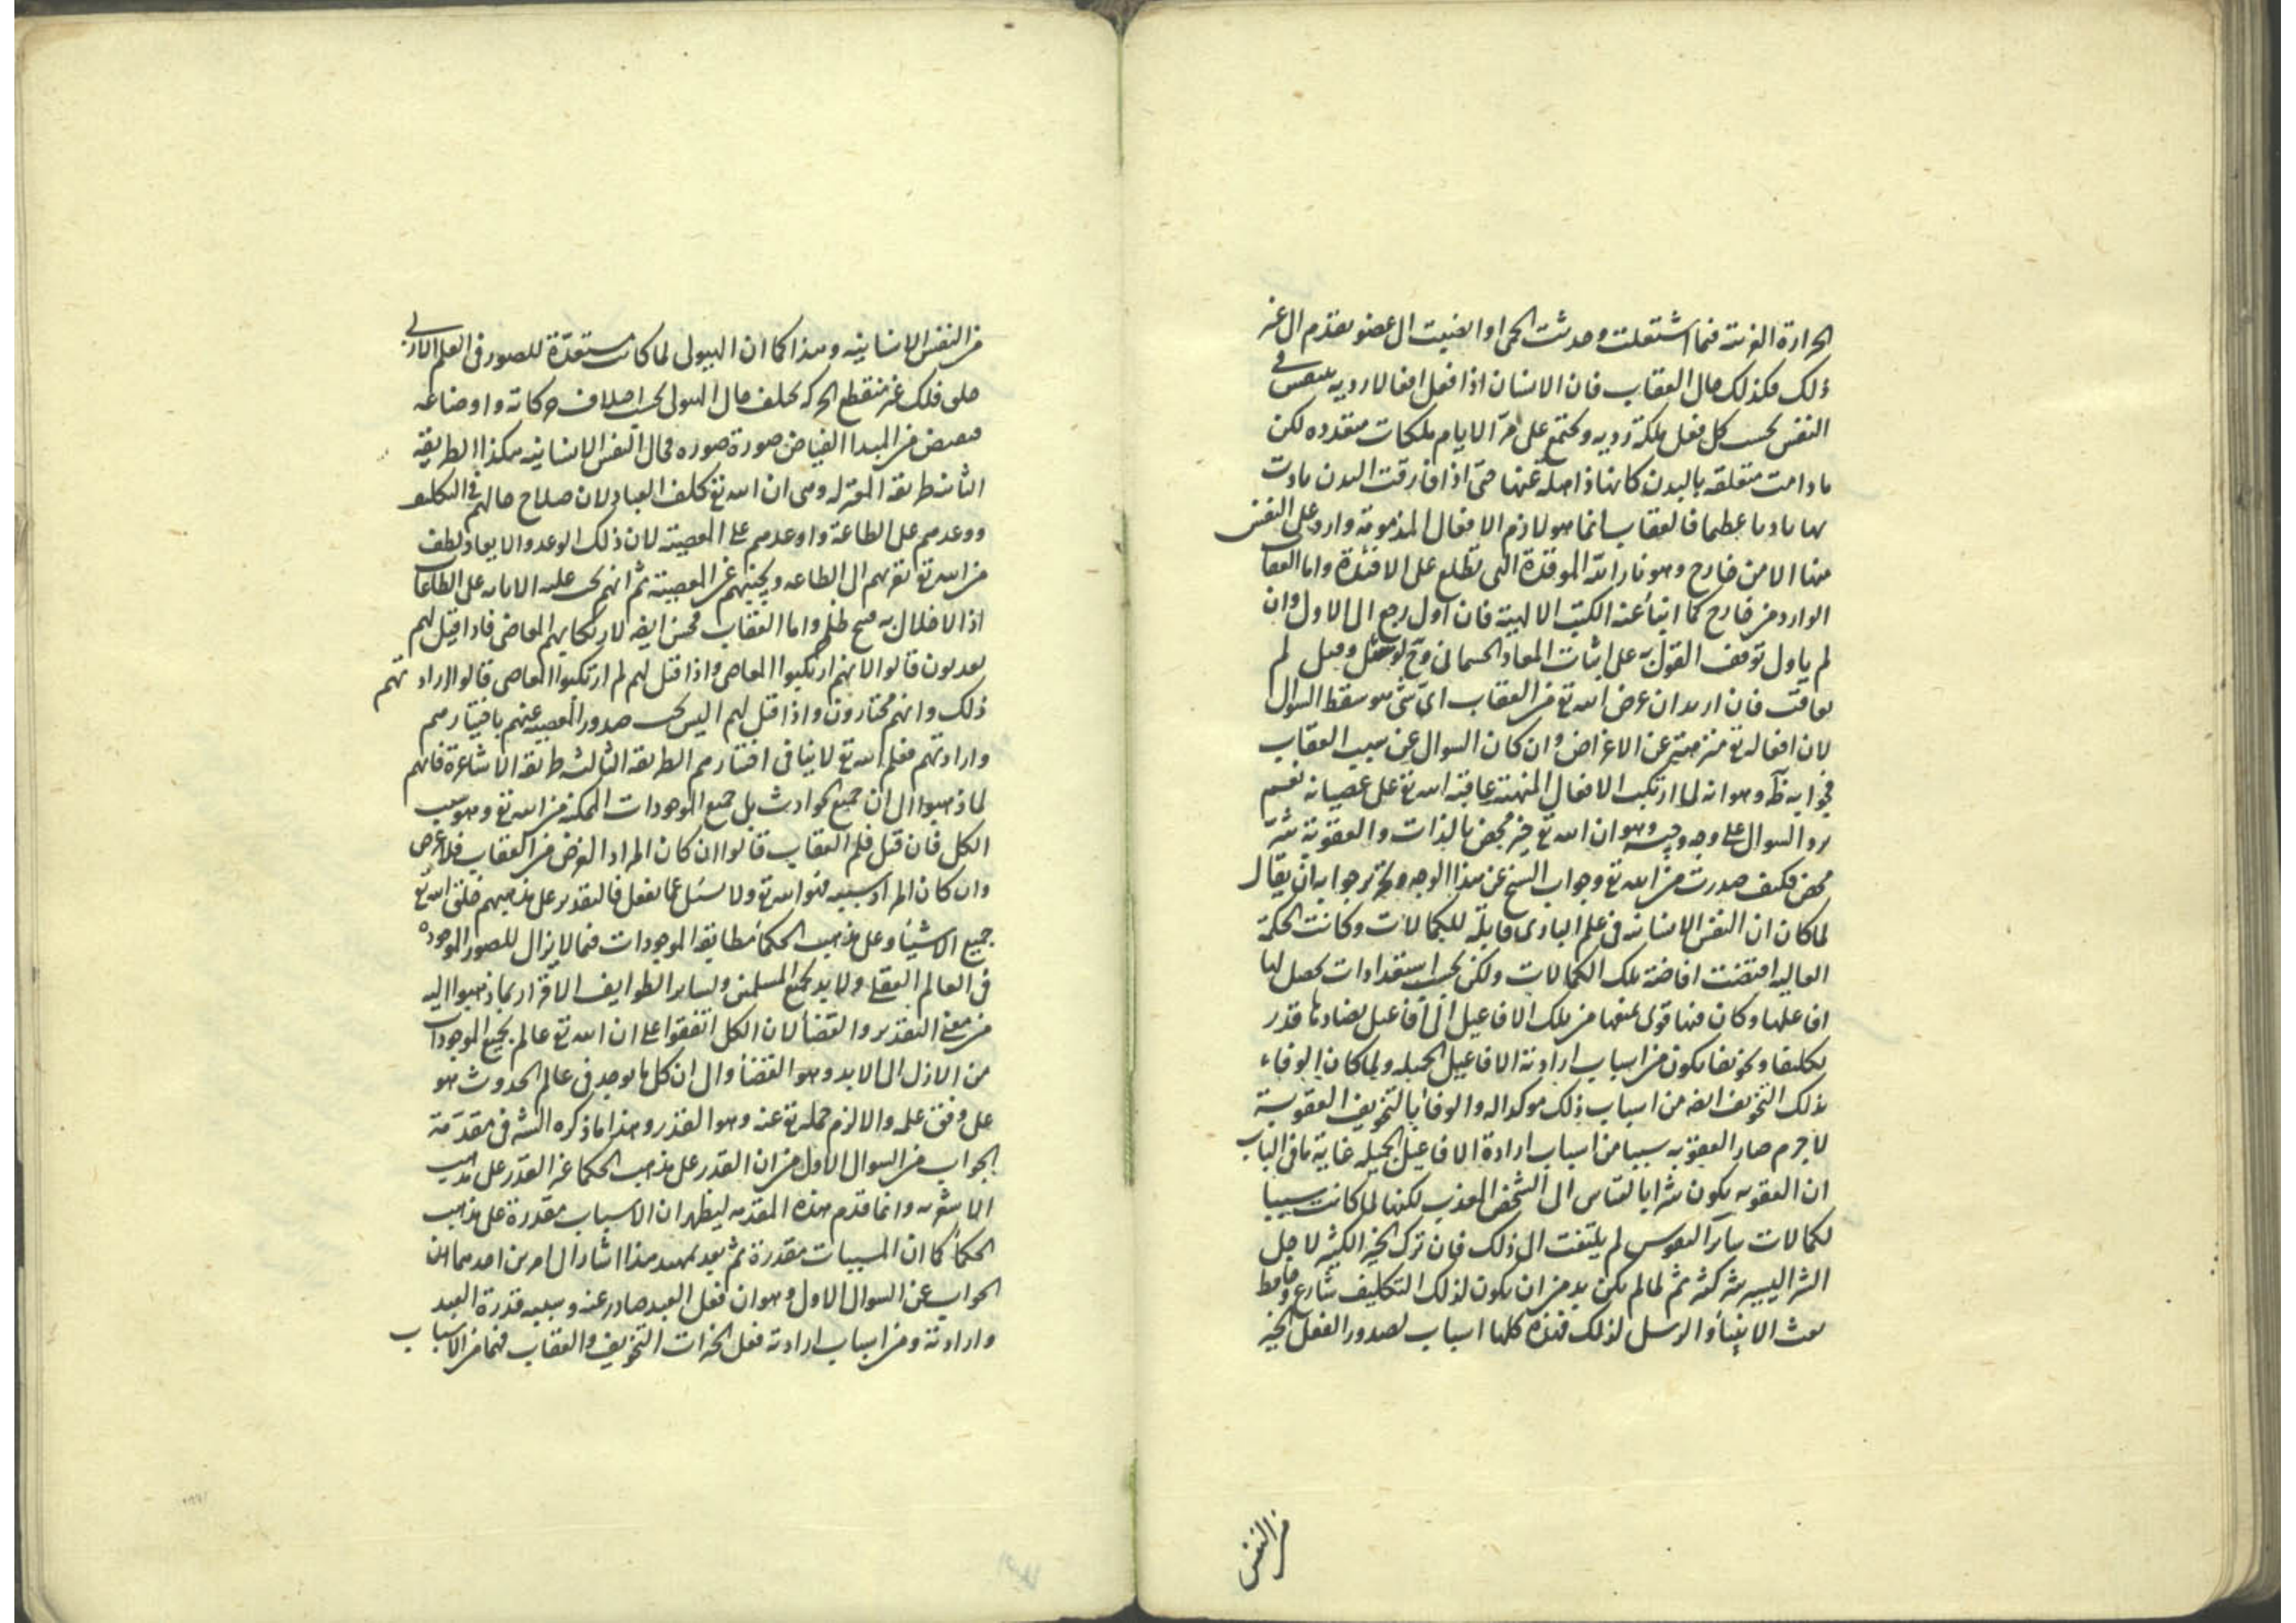 الحرارة الغريبة فيها اشتعلت وحدثت الحمى او انصبت الى عضو تورم الى غير
ذلك فكذلك حال العقاب فان الانسان اذا فعل افعالا رديه ينتقش في
النفس بحسب كل فعل ملكة رديه وتجتمع على مر الايام ملكات متعدده لكن
ما دامت متعلقه بالبدن كانها ذاهلة عنها حتى اذا فارقت البدن تاذت
بها تاذيا عظيما فالعقاب انما هو لازم الافعال المذمومة وارد على النفس
منها لا من خارج وهو نار الله الموقدة التى تطلع على الافئدة واما العقاب
الوارد من خارج كما انبأ عنه الكتب الالهية فان اول رجع الى الاول وان
لم ياول توقف القول به على اثبات المعاد الجسمانى وح لو سئل وقيل لم
يعاقب فان اريد ان غرض الله تع من العقاب اى شى هو سقط السوال
لان افعاله تع منزهة عن الاغراض وان كان السوال عن سبب العقاب
فجوابه ظ وهو انه لما ارتكب الافعال المنهية عاقبه الله تع على عصيانه نعم
يرد السوال على وجه وجيه وهو ان الله تع خير محض بالذات والعقوبة شر
محض فكيف صدرت من الله تع وجواب الشيخ عن هذا الوجه وتحرير جوابه ان يقال
لما كان ان النفس الانسانيه فى علم البارى قابلة للكمالات وكانت الحكمة
العاليه اقتضت افاضة تلك الكمالات ولكن بحسب استعدادات تحصل لها
افاعيلها وكان فيها قوى تمنعها من تلك الافاعيل الى افاعيل يضادها قدر
تكليفا وتخويفا يكون من اسباب ارادته الافاعيل الجميله ولما كان الوفاء
بذلك التخويف ايضه من اسباب ذلك موكدا له والوفاء بالتخويف العقوبة
لا جرم صار العقوبه سببا من اسباب ارادة الافاعيل الجميله غاية ما فى الباب
ان العقوبه يكون شرا بالقياس الى الشخص المعذب لكنها لما كانت سببا
لكمالات سائر النفوس لم يلتفت الى ذلك فان ترك الخير الكثير لاجل
الشر اليسير شر كثير ثم لما لم يكن بد من ان يكون لذلك التكليف شارع وحافظ
بعث الانبياء والرسل لذلك فهذه كلها اسباب لصدور الفعل الخير
من النفس
من النفس الانسانيه وهذا كما ان الهيولى لما كانت مستعدة للصور فى العلم الازلى
خلق فلك غير منقطع الحركه يختلف حال الهيولى بحسب اختلاف حركاته واوضاعه
فيفيض من المبدا الفياض صورة صوره فحال النفس الانسانيه هكذا الطريقة
الثانيه طريقة المعتزله وهى ان الله تع كلف العباد لان صلاح حالهم فى التكليف
ووعدهم على الطاعة واوعدهم على المعصية لان ذلك الوعد والايعاد لطف
من الله تع يقربهم الى الطاعه ويجنبهم عن المعصية ثم انهم يجب عليه الاثابه على الطاعات
اذ الاخلال به قبح ظلم واما العقاب فحسن ايضه لارتكابهم المعاصى فاذا قيل لهم
يعذبون قالوا لانهم ارتكبوا المعاصى واذا قيل لهم لم ارتكبوا المعاصى قالوا لارادتهم
ذلك وانهم مختارون واذا قيل لهم اليس يجب صدور المعصيه عنهم باختيارهم
وارادتهم فعلم الله تع لا ينافى اختيارهم الطريقه الثالثه طريقة الاشاعرة فانهم
لما ذهبوا الى ان جميع الحوادث بل جميع الموجودات الممكنه من الله تع وهو سبب
الكل فان قيل فلم العقاب قالوا ان كان المراد الغرض من العقاب فلا غرض
وان كان المراد سببه فهو الله تع ولا يسئل عما يفعل فالتقدير على مذهبهم خلق الله تع
جميع الاشياء وعلى مذهب الحكماء مطابقة الموجودات فيما لا يزال للصور الموجوده
فى العالم العقلى ولا بد لجميع المسلمين ولساير الطوايف الاقرار بما ذهبوا اليه
من معنى التقدير والقضاء لان الكل اتفقوا على ان الله تع عالم بجميع الموجودات
من الازل الى الابد وهو القضاء والى ان كل ما يوجد فى عالم الحدوث هو
على وفق علمه والا لزم جهله تع عنه وهو القدر وهذا ما ذكره الشيخ فى مقدمة
الجواب من السوال الاول من ان القدر على مذهب الحكماء غير القدر على مذهب
الاشعريه وانما قدم هذه المقدمه ليظهر ان الاسباب مقدرة على مذهب
الحكماء كما ان المسببات مقدرة ثم بعد تمهيد هذا اشار الى امرين احدهما ان
الجواب عن السوال الاول وهو ان فعل العبد صادر عنه وسببه قدرة العبد
وارادته ومن اسباب ارادته فعل الخيرات التخويف والعقاب فهما من الاسباب